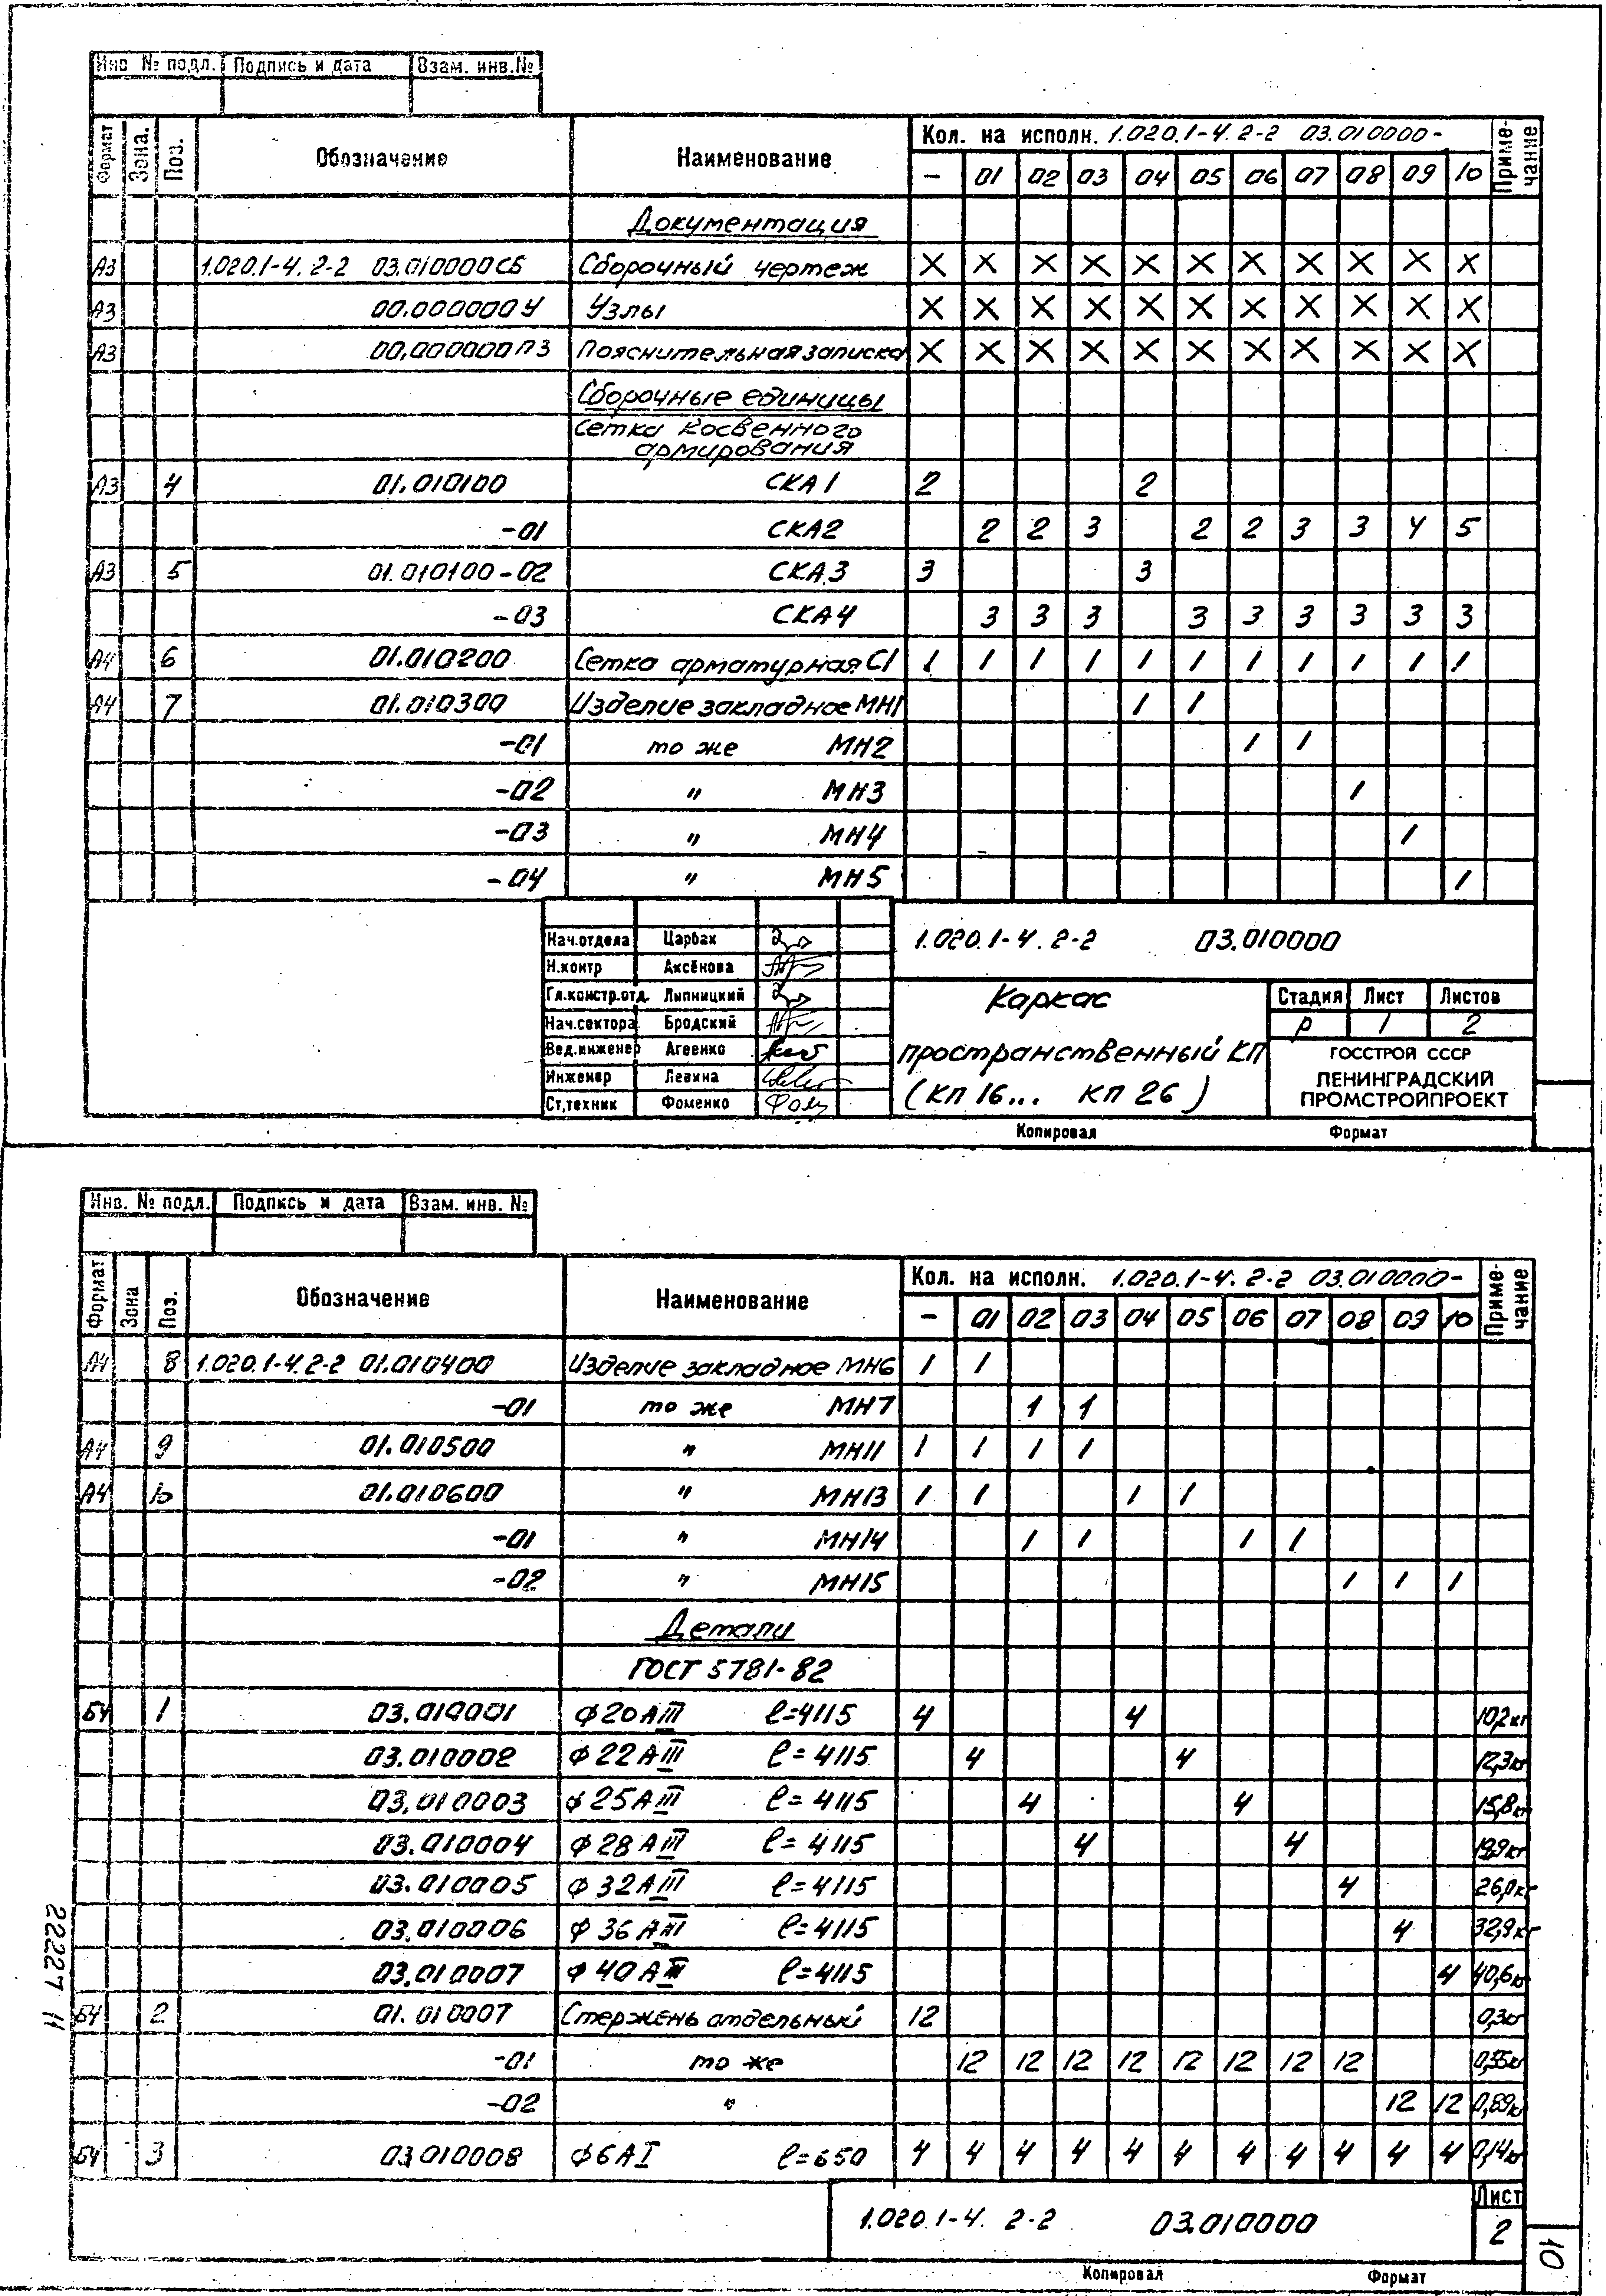 Инв № подл. Подпись и дата Взам. инв.№
Формат Зона. Поз. Обозначение Наименование Кол. на исполн. 1.020.1-4.2-2 03.010000- Приме-чание
- 01 02 03 04 05 06 07 08 09 10
Документация
А3 1.020.1-4.2-2 03.010000СБ Сборочный чертеж X X X X X X X X X X X
А3 00.000000У Узлы X X X X X X X X X X X
А3 00.000000ПЗ Пояснительная записка X X X X X X X X X X X
Сборочные единицы
Сетка косвенного
армирования
А3 4 01.010100 СКА1 2 2
-01 СКА2 2 2 3 2 2 3 3 4 5
А3 5 01.010100-02 СКА3 3 3
-03 СКА4 3 3 3 3 3 3 3 3 3
А4 6 01.010200 Сетка арматурная С1 1 1 1 1 1 1 1 1 1 1 1
А4 7 01.010300 Изделие закладное МН1 1 1
-01 то же МН2 1 1
-02 " МН3 1
-03 " МН4 1
-04 " МН5 1
1.020.1-4.2-2 03.010000
Нач.отдела Царбак
Н.контр Аксёнова
Гл.констр.отд. Лыпницкий
Нач.сектора Бродский
Вед.инженер Агеенко
Инженер Левина
Ст.техник Фоменко
Каркас
пространственный КП
(КП 16... КП 26)
Стадия Лист Листов
Р 1 2
ГОССТРОЙ СССР
ЛЕНИНГРАДСКИЙ
ПРОМСТРОЙПРОЕКТ
Копировал Формат
Инв. № подл. Подпись и дата Взам. инв. №
Формат Зона Поз. Обозначение Наименование Кол. на исполн. 1.020.1-4.2-2 03.010000- Приме-чание
- 01 02 03 04 05 06 07 08 09 10
А4 8 1.020.1-4.2-2 01.010400 Изделие закладное МН6 1 1
-01 то же МН7 1 1
А4 9 01.010500 " МН11 1 1 1 1
А4 10 01.010600 " МН13 1 1 1 1
-01 " МН14 1 1 1 1
-02 " МН15 1 1 1
Детали
ГОСТ 5781-82
Б4 1 03.010001 ϕ20АIII ℓ=4115 4 4 10,2кг
03.010002 ϕ22АIII ℓ=4115 4 4 12,3кг
03.010003 ϕ25АIII ℓ=4115 4 4 15,8кг
03.010004 ϕ28АIII ℓ=4115 4 4 19,9кг
03.010005 ϕ32АIII ℓ=4115 4 26,0кг
03.010006 ϕ36АIII ℓ=4115 4 32,9кг
03.010007 ϕ40АIII ℓ=4115 4 40,6кг
Б4 2 01.010007 Стержень отдельный 12 0,3кг
-01 то же 12 12 12 12 12 12 12 12 0,55кг
-02 " 12 12 0,69кг
Б4 3 03.010008 ϕ6АI ℓ=650 4 4 4 4 4 4 4 4 4 4 4 0,14кг
1.020.1-4.2-2 03.010000
Лист
2
Копировал Формат
22227 11
10